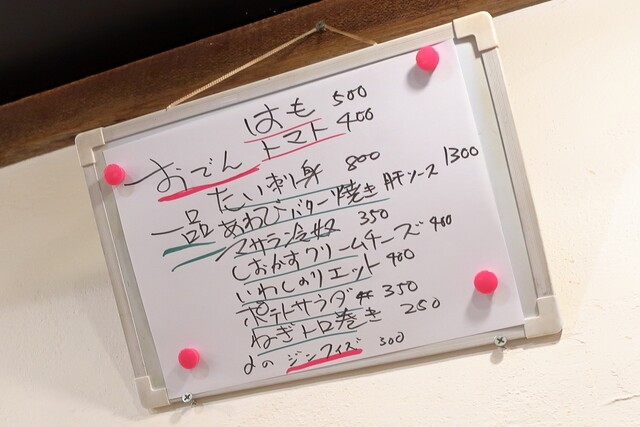 はも 500
おでん トマト 400
たい刺身 800
一品 あわびバター焼き 肝ソース 1300
マサラ冷奴 350
しおかすクリームチーズ 400
いわしのリエット 400
ポテトサラダ 350
ねぎトロ巻き 250
ジンフィズ 500